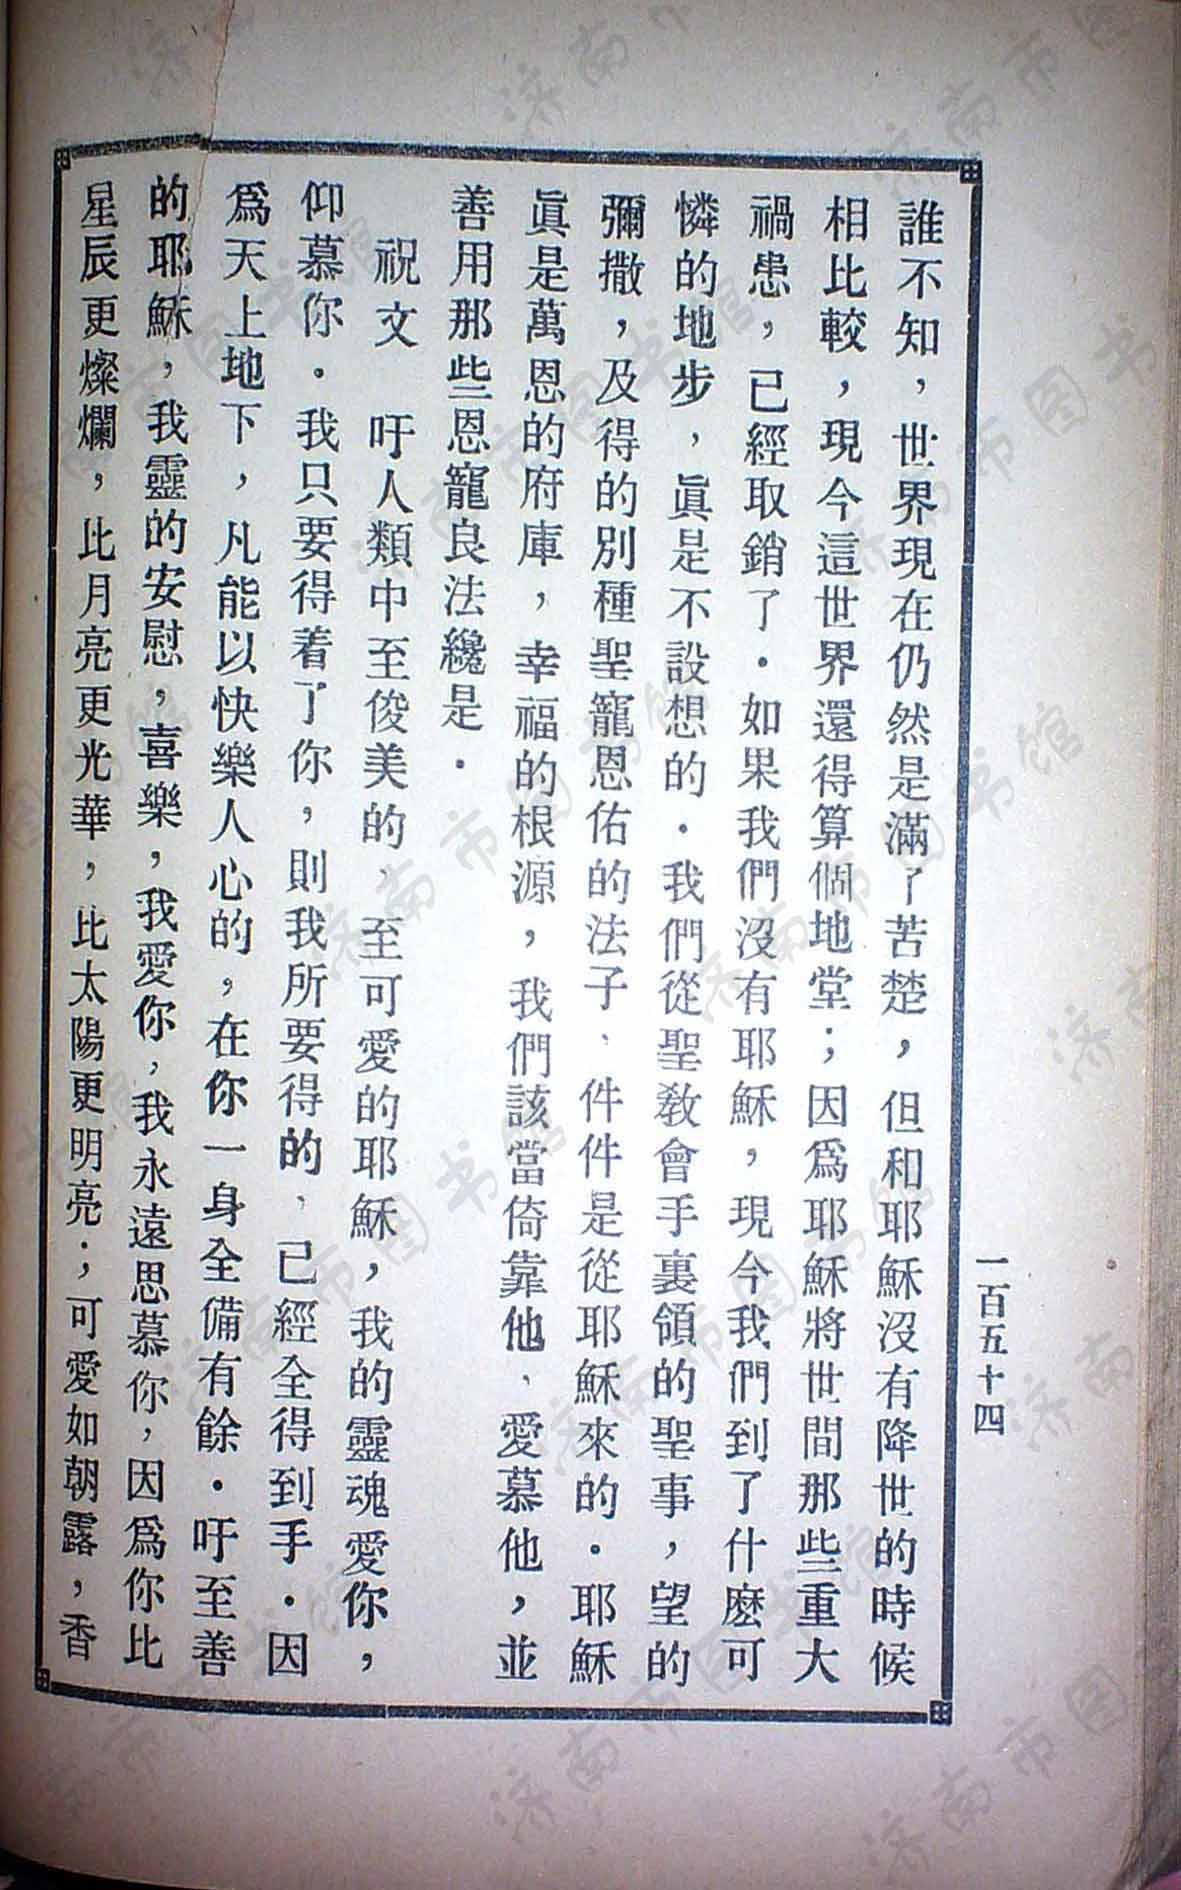 誰不知，世界現在仍然是滿了苦楚，但和耶穌沒有降世的時候
相比較，現今這世界還得算個地堂；因爲耶穌將世間那些重大
禍患，已經取銷了．如果我們沒有耶穌，現今我們到了什麽可
憐的地步，眞是不設想的．我們從聖敎會手裏領的聖事，望的
彌撒，及得的別種聖寵恩佑的法子、件件是從耶穌來的．耶穌
眞是萬恩的府庫，幸福的根源，我們該當倚靠他、愛慕他，並
善用那些恩寵良法纔是．
祝文　吁人類中至俊美的、至可愛的耶穌，我的靈魂愛你，
仰慕你．我只要得着了你，則我所要得的、已經全得到手．因
爲天上地下，凡能以快樂人心的，在你一身全備有餘．吁至善
的耶穌，我靈的安慰，喜樂，我愛你，我永遠思慕你，因爲你比
星辰更燦爛，比月亮更光華，比太陽更明亮；可愛如朝露，香
一百五十四
济南市图书馆